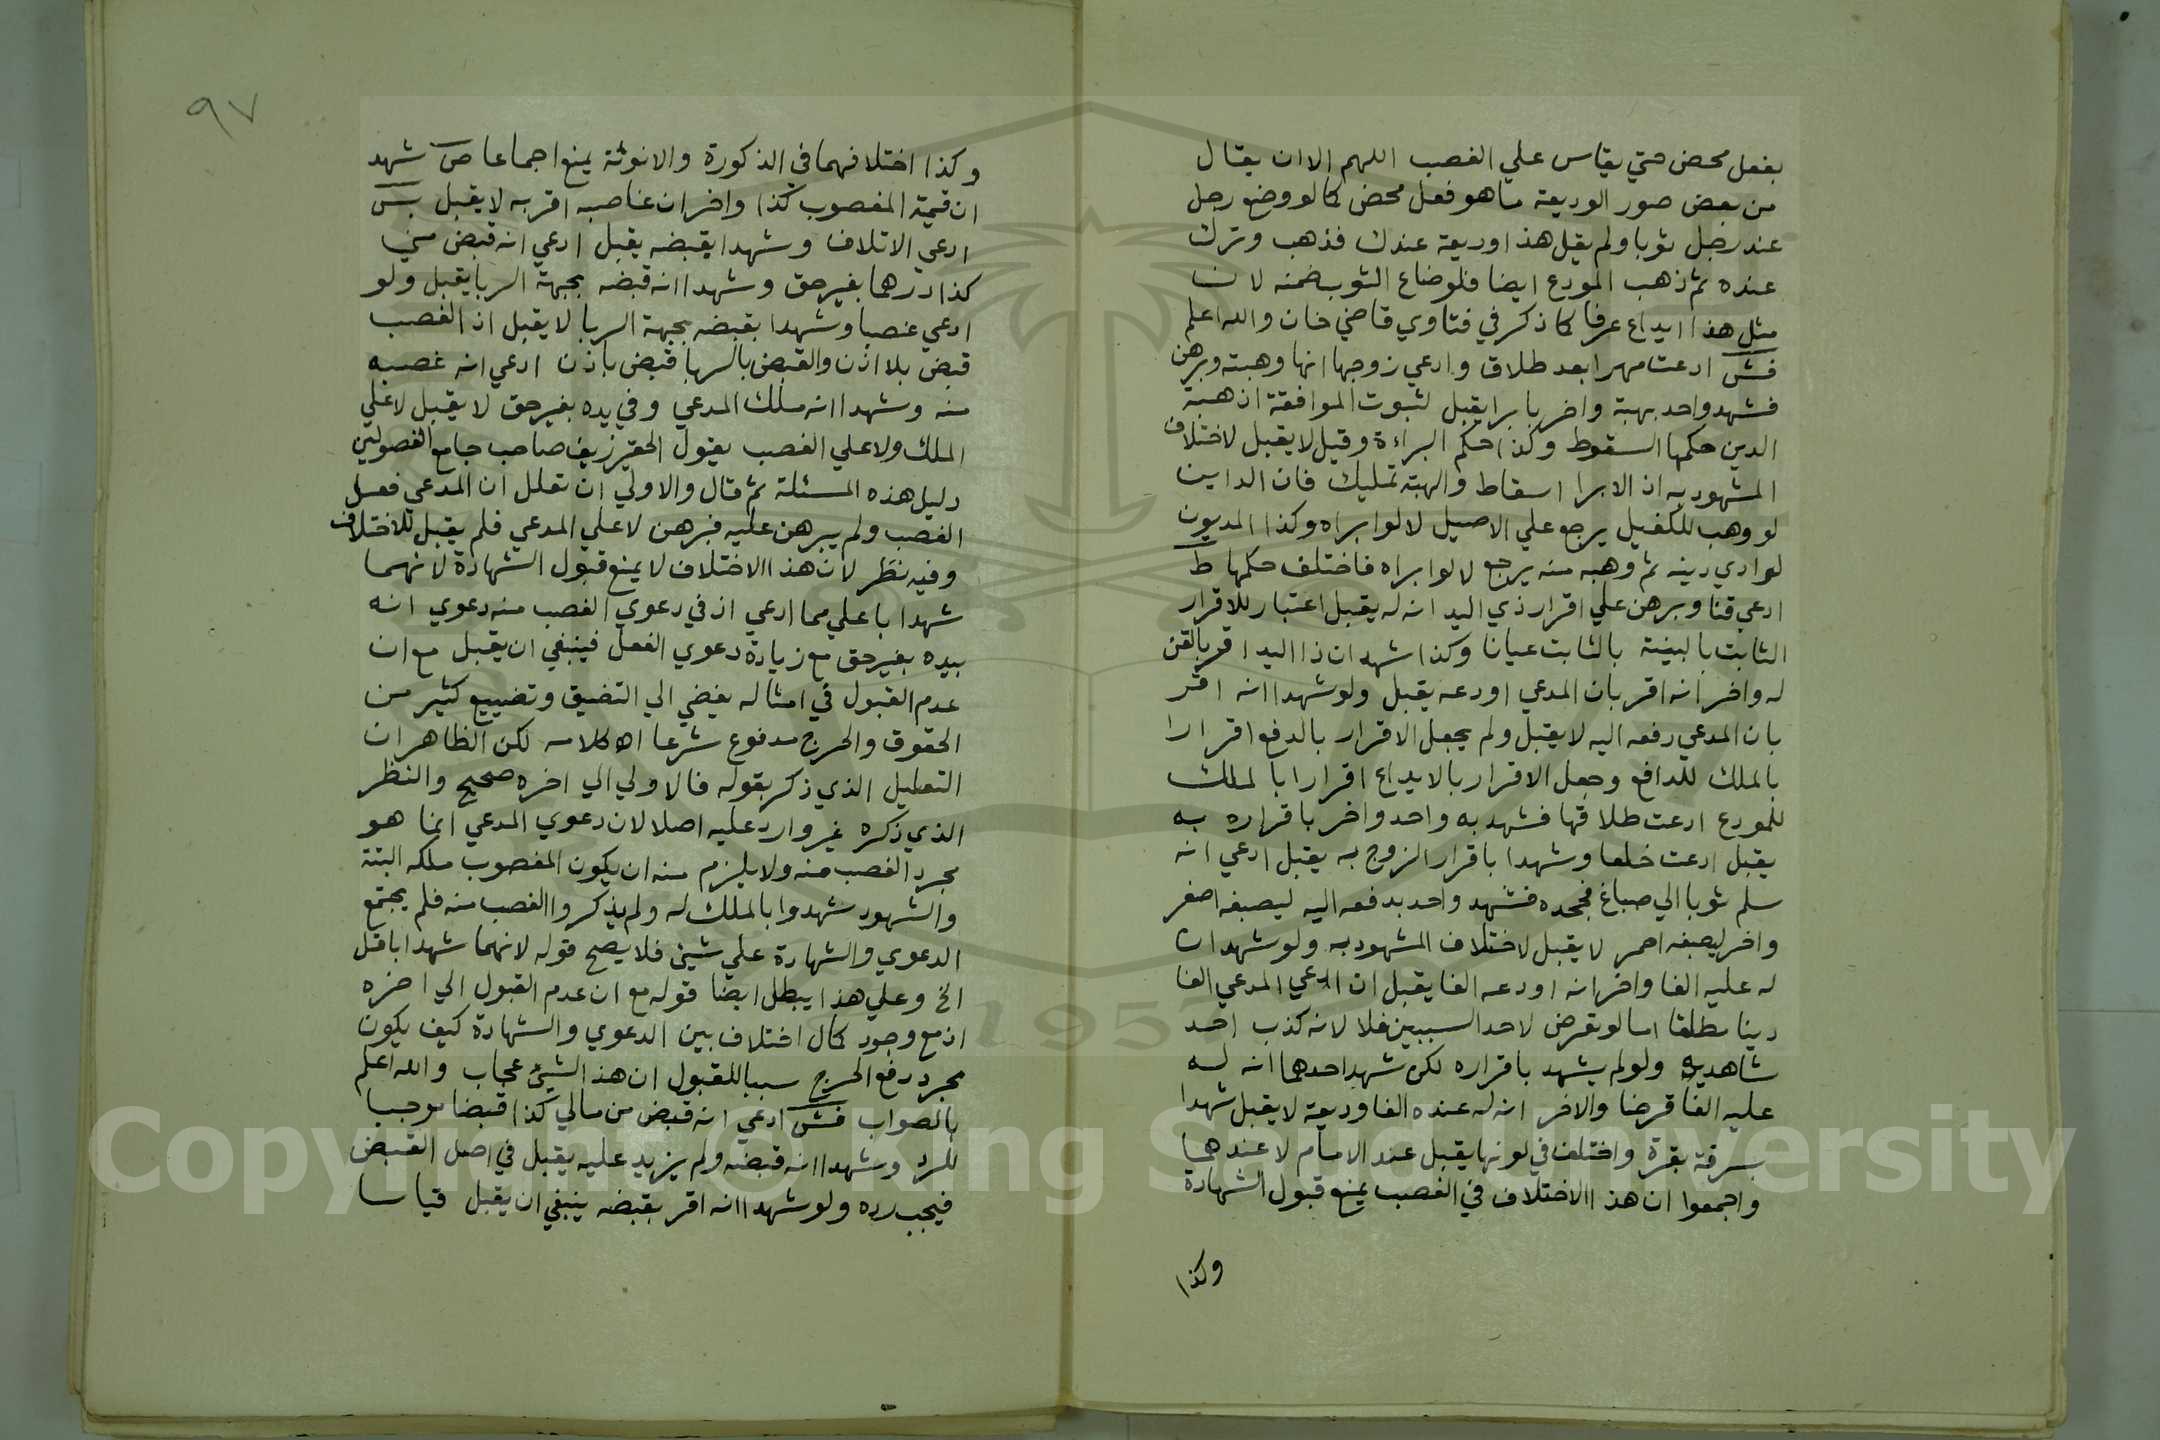 بفعل محض حتي يقاس علي الغصب اللهم الا ان يقال
من بعض صور الوديعة ما هو فعل محض كما لو وضع رجل
عند رجل ثوبا ولم يقل هذا وديعة عندك فذهب وترك
عنده ثم ذهب المودع ايضا فلو ضاع الثوب ضمنه لان
مثل هذا ايداع عرفا كما ذكر في فتاوي قاضي خان والله اعلم
فش ادعت مهرا بعد طلاق وادعي زوجها انها وهبته وبرهن
فشهد واحد بهبة واخر بابرا يقبل لثبوت الموافقة اذ هبة
الدين حكمها السقوط وكذا حكم البراءة وقيل لا يقبل لاختلاف
المشهود به اذ الابرا اسقاط والهبة تمليك فان الداين
لو وهب للكفيل يرجع علي الاصيل لا لو ابراه وكذا المديون
لو ادي دينه ثم وهبه منه يرجع لا لو ابراه فاختلف حكمها ط
ادعي قنا وبرهن علي اقرار ذي اليد انه له يقبل اعتبار للاقرار
الثابت بالبينة بالثابت عيانا وكذا شهد ان ذا اليد اقر بالقن
له واخر انه اقر بان المدعي اودعه يقبل ولو شهدا انه اقر
بان المدعي دفعه اليه لا يقبل ولم يجعل الاقرار بالدفع اقرارا
بالملك للدافع وجعل الاقرار بالايداع اقرارا بالملك
للمودع ادعت طلاقها فشهد به واحد واخر باقراره به
يقبل ادعت خلعا وشهدا باقرار الزوج به يقبل ادعي انه
سلم ثوبا الي صباغ فجحده فشهد واحد بدفعه اليه ليصبغه اصفر
واخر ليصبغه احمر لا يقبل لاختلاف المشهود به ولو شهد ان
له عليه الفا واخر انه اودعه الفا يقبل ان ادعي المدعي الفا
دينا مطلقا اما لو تعرض لاحد السببين فلا لانه كذب احد
شاهديه ولو لم يشهد باقراره لكن شهد احدهما انه له
عليه الفا قرضا والاخر انه له عنده الفا وديعة لا يقبل شهدا
بسرقة بقرة واختلف في لونها يقبل عند الامام لا عندهما
واجمعوا ان هذا الاختلاف في الغصب يمنع قبول الشهادة
وكذا
٩٧
وكذا اختلافهما في الذكورة والانوثة يمنع اجماعا ص شهد
ان قيمة المغصوب كذا واخر ان غاصبه اقر به لا يقبل بس
ادعي الاتلاف وشهدا بقبضه يقبل ادعي انه قبض مني
كذا درهما بغير حق وشهدا انه قبضه بجهة الربا يقبل ولو
ادعي غصبا وشهدا بقبضه بجهة الربا لا يقبل اذ الغصب
قبض بلا اذن والقبض بالربا قبض باذن ادعي انه غصبه
منه وشهدا انه ملك المدعي وفي يده بغير حق لا يقبل لا علي
الملك ولا علي الغصب يقول الحقير زيف صاحب جامع الفصولين
دليل هذه المسئلة ثم قال والاولي ان تعلل ان المدعي فعل
الغصب ولم يبرهن عليه فبرهن لا علي المدعي فلم يقبل للاختلاف
وفيه نظر لان هذا الاختلاف لا يمنع قبول الشهادة لانهما
شهدا باعلي مما ادعي اذ في دعوي الغصب منه دعوي انه
بيده بغير حق مع زيادة دعوي الفعل فينبغي ان يقبل مع ان
عدم القبول في امثاله يفضي الي التضيق وتضييع كثير من
الحقوق والحرج مدفوع شرعا اه كلامه لكن الظاهر ان
التعليل الذي ذكر بقوله فالاولي الي اخره صحيح والنظر
الذي ذكره غير وارد عليه اصلا لان دعوي المدعي انما هو
مجرد الغصب منه ولا يلزم منه ان يكون المغصوب ملكه البتة
والشهود شهدوا بالملك له ولم يذكروا الغصب منه فلم يجتمع
الدعوي والشهادة علي شيئ فلا يصح قوله لانهما شهدا باقل
الخ وعلي هذا يبطل ايضا قوله مع ان عدم القبول الي اخره
اذ مع وجود كمال اختلاف بين الدعوي والشهادة كيف يكون
مجرد رفع الحرج سببا للقبول ان هذا لشيئ عجاب والله اعلم
بالصواب فش ادعي انه قبض من مالي كذا قبضا موجبا
للرد وشهدا انه قبضه ولم يزيد عليه يقبل في اصل القبض
فيجب رده ولو شهدا انه اقر بقبضه ينبغي ان يقبل قياسا
1957
Copyright © King Saud University